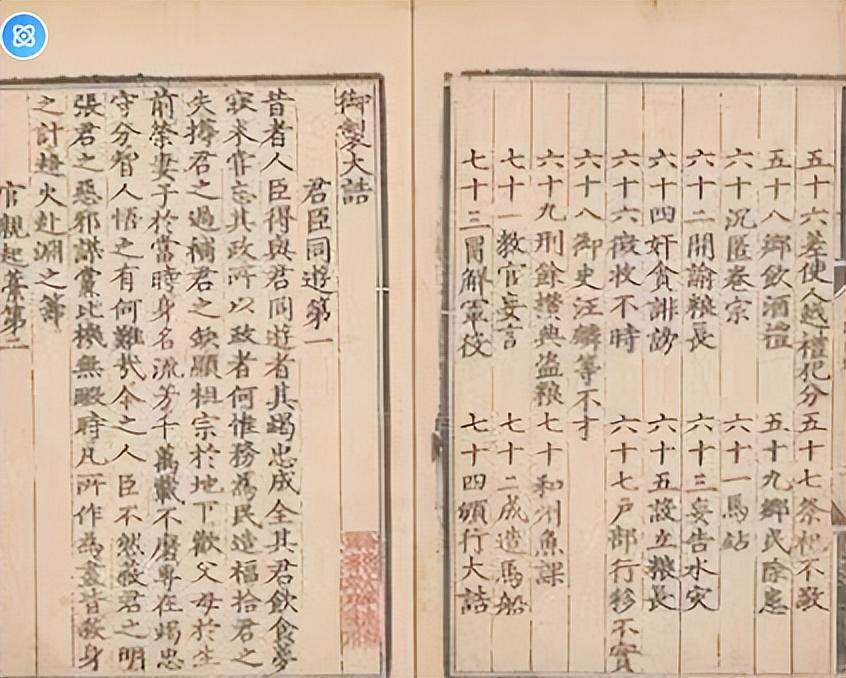 五十六差使人越禮犯分 五十七祭祀不敬
五十八鄉飲酒禮 五十九鄉民除患
六十沉匿卷宗 六十一馬站
六十二開諭粮長 六十三妄告水灾
六十四奸貪誹謗 六十五設立粮長
六十六徵收不時 六十七戶部行移不實
六十八御史汪麟等不才
六十九刑餘攢典盗粮 七十和州魚課
七十一教官妄言 七十二成造馬船
七十三冐解軍役 七十四頒行大誥
御製大誥
君臣同遊第一
昔者人臣得與君同遊者其竭忠成全其君飲食夢
寐未嘗忘其政所以政者何惟務為民造福拾君之
失撙君之過補君之缺顯祖宗於地下歡父母於生
前榮妻子於當時身名流芳千萬載不磨專在竭忠
守分智人悟之有何難哉今之人臣不然蔽君之明
張君之惡邪謀黨比機無暇時凡所作為盡皆殺身
之計趨火赴淵之籌
官親起藁第二